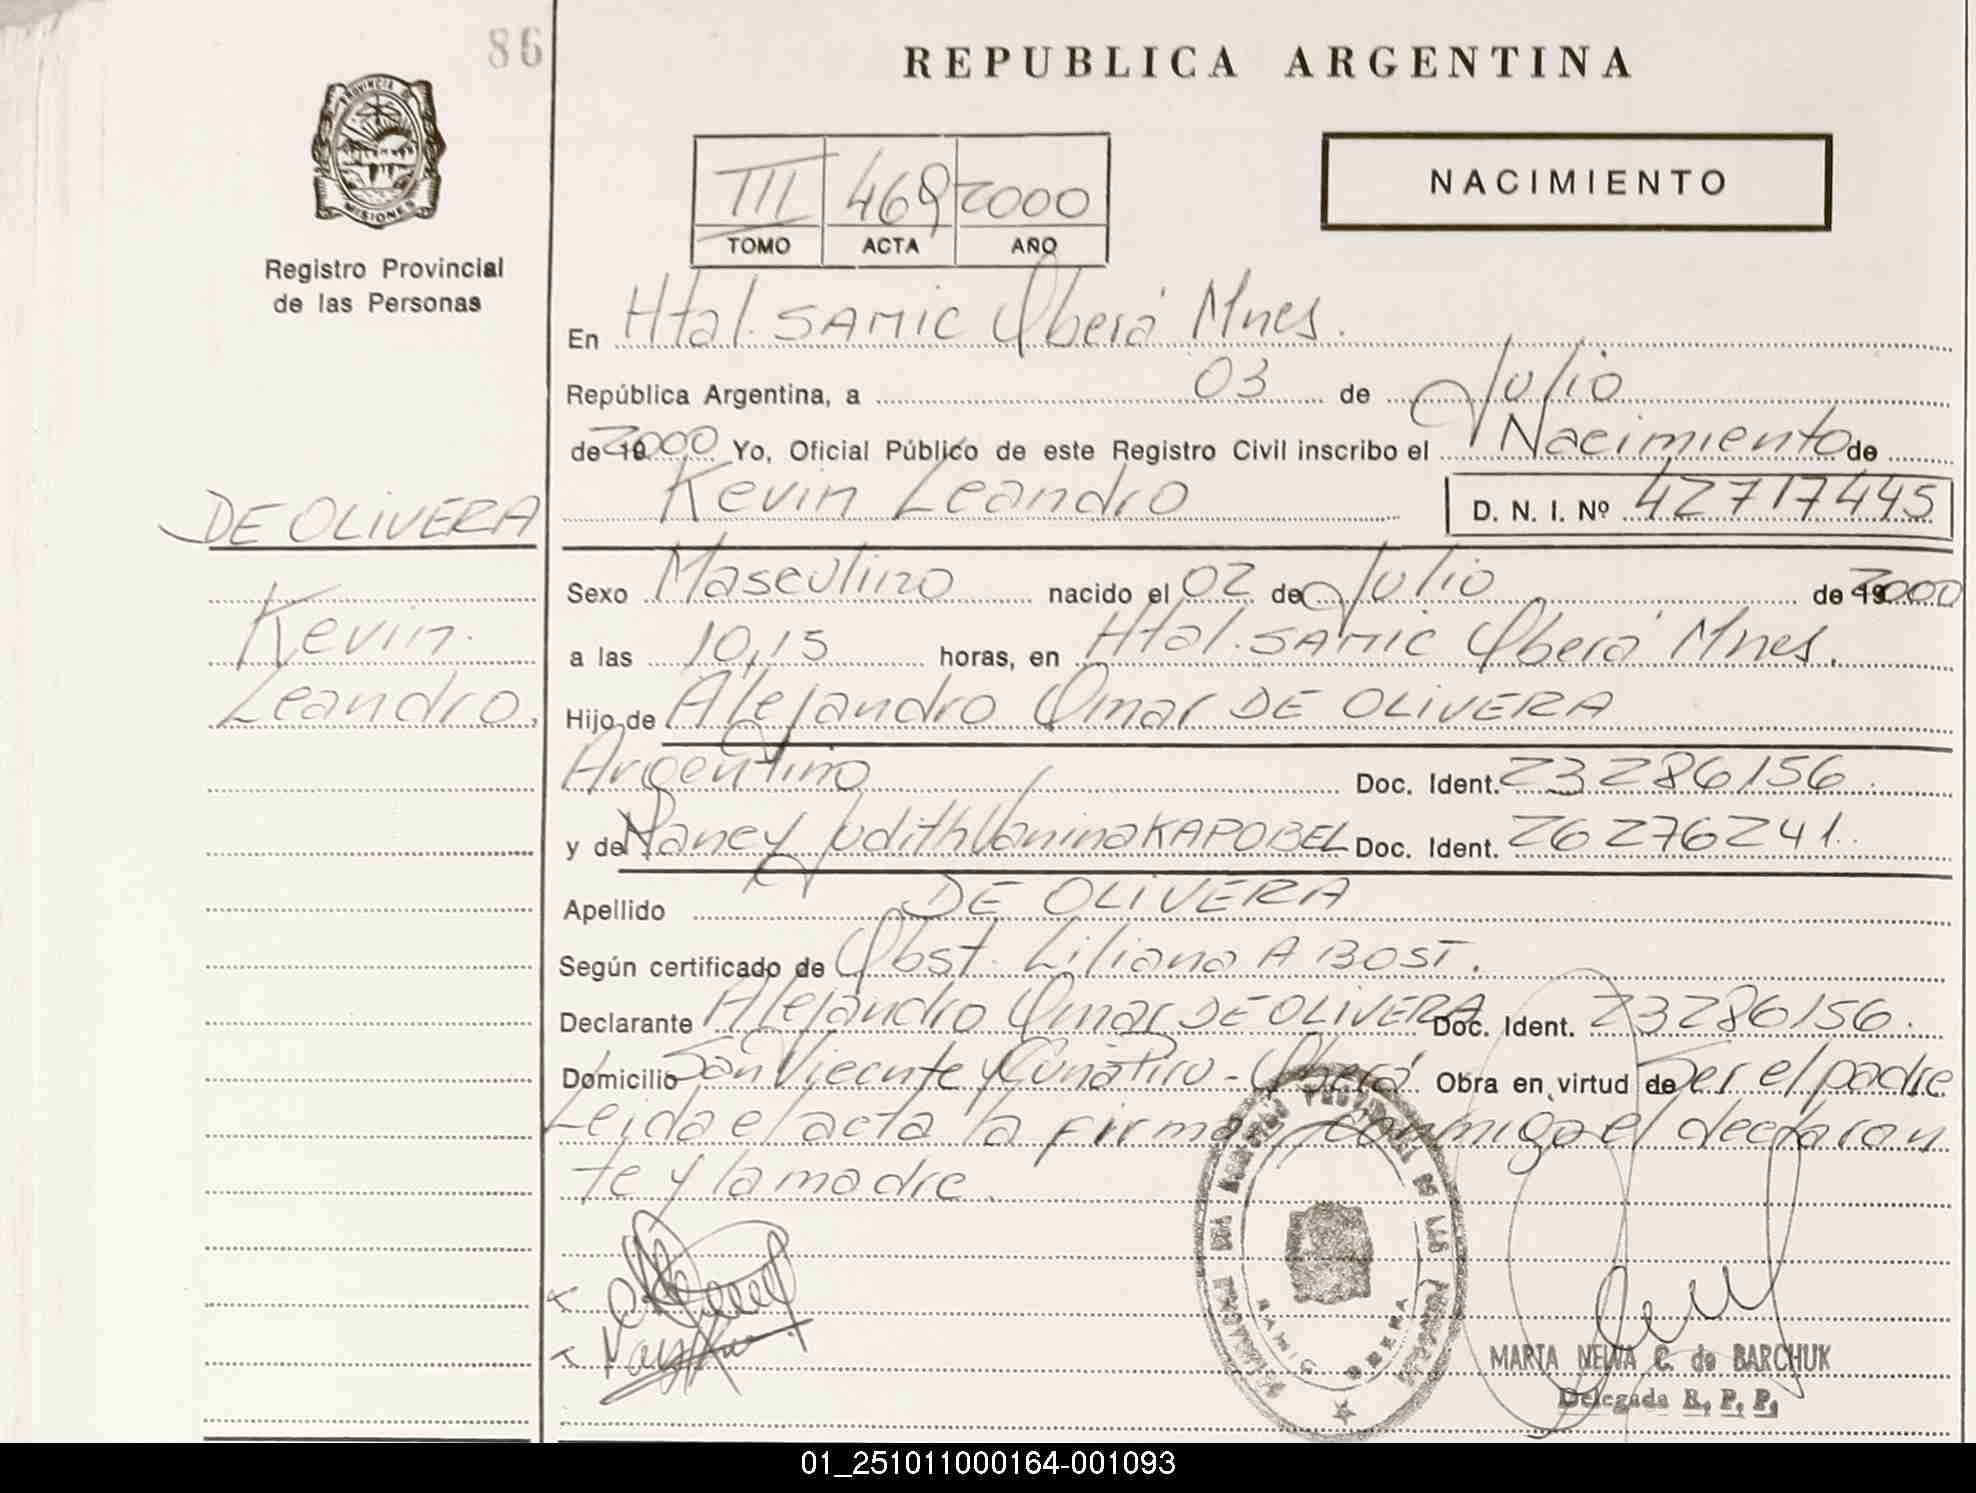 86
REPUBLICA ARGENTINA
PROVINCIA DE
MISIONES
Registro Provincial
de las Personas
III 469 2000
TOMO ACTA AÑO
NACIMIENTO
En Htal. SAMIC Oberá Mnes.
República Argentina, a 03 de Julio
de 2000 Yo, Oficial Público de este Registro Civil inscribo el Nacimiento de
Kevin Leandro D. N. I. Nº 42717445
DE OLIVERA
Kevin
Leandro.
Sexo Masculino nacido el 02 de Julio de 2000
a las 10,15 horas, en Htal. SAMIC Oberá Mnes.
Hijo de Alejandro Omar DE OLIVERA
Argentino Doc. Ident. 23286156.
y de Nancy Judith Vanina KAPOBEL Doc. Ident. 26276241.
Apellido DE OLIVERA
Según certificado de Obst. Liliana A BOST.
Declarante Alejandro Omar DE OLIVERA Doc. Ident. 23286156.
Domicilio San Vicente y Cuña Pirú - Oberá Obra en virtud de Ser el padre
Leida el acta la firman conmigo el declaran
te y la madre.
MARTA NELVA C. de BARCHUK
Delegada R. P. P.
01_251011000164-001093